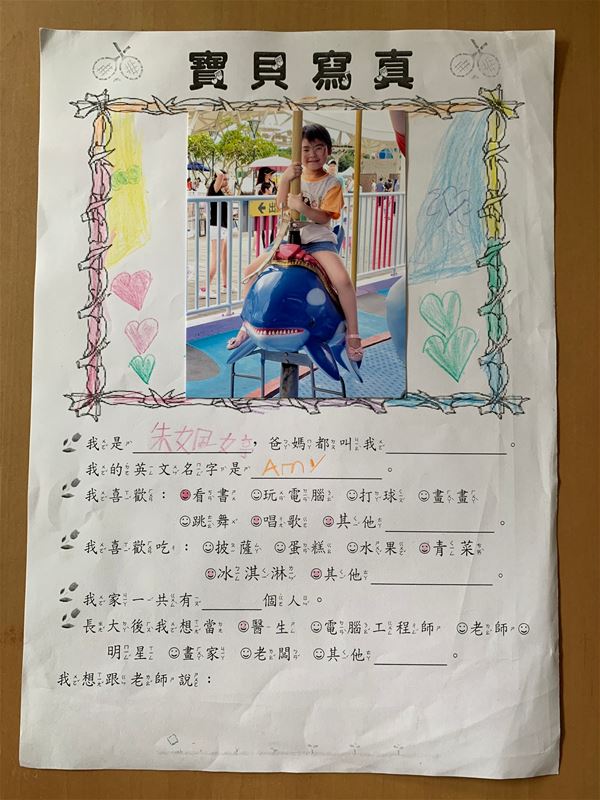 寶貝寫真
出
我是朱姵妤,爸媽都叫我______。
我的英文名字是Amy。
我喜歡: ☺看書 ☺玩電腦 ☺打球 ☺畫畫
☺跳舞 ☺唱歌 ☺其他______。
我喜歡吃: ☺披薩 ☺蛋糕 ☺水果 ☺青菜
☺冰淇淋 ☺其他______。
我家一共有______個人。
長大後我想當 ☺醫生 ☺電腦工程師 ☺老師☺
明星 ☺畫家 ☺老闆 ☺其他______。
我想跟老師說: